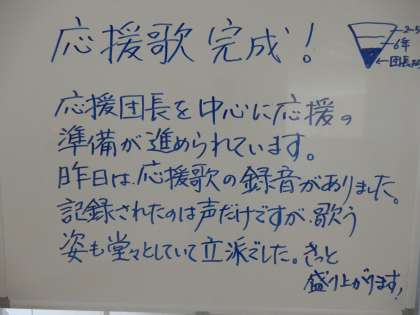 応援歌 完成!
2~5
6年
団長
応援団長を中心に応援の
準備が進められています。
昨日は、応援歌の録音がありました。
記録されたのは声だけですが、歌う
姿も堂々としていて立派でした。きっと
盛り上がります!